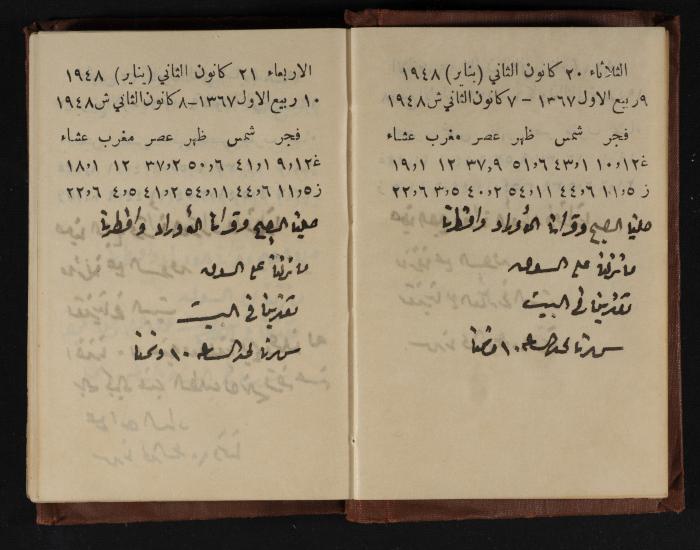 الثلاثاء ٢٠ كانون الثاني (يناير) ١٩٤٨
٩ ربيع الاول ١٣٦٧ – ٧ كانون الثاني ش ١٩٤٨
فجر شمس ظهر عصر مغرب عشاء
غ ١٢٫١٠ ١٫٤٣ ٦٫٥١ ٩٫٣٧ ١٢ ١٫١٩
ز ٥٫١١ ٦٫٤٤ ١١٫٥٤ ٢٫٤٠ ٥٫٣ ٦٫٢٢
صلينا الصبح وقرانا الأوراد وافطرنا
ما نزلنا على السوق
تغدينا في البيت
سهرنا لحد الساعة ١٠ ونمنا
الاربعاء ٢١ كانون الثاني (يناير) ١٩٤٨
١٠ ربيع الاول ١٣٦٧ – ٨ كانون الثاني ش ١٩٤٨
فجر شمس ظهر عصر مغرب عشاء
غ ١٢٫٩ ١٫٤١ ٦٫٥٠ ٢٫٣٧ ١٢ ١٫١٨
ز ٥٫١١ ٦٫٤٤ ١١٫٥٤ ٢٫٤١ ٥٫٤ ٦٫٢٢
صلينا الصبح وقرانا الأوراد وافطرنا
ما نزلنا على السوق
تغدينا في البيت
سهرنا لحد الساعة ١٠ ونمنا